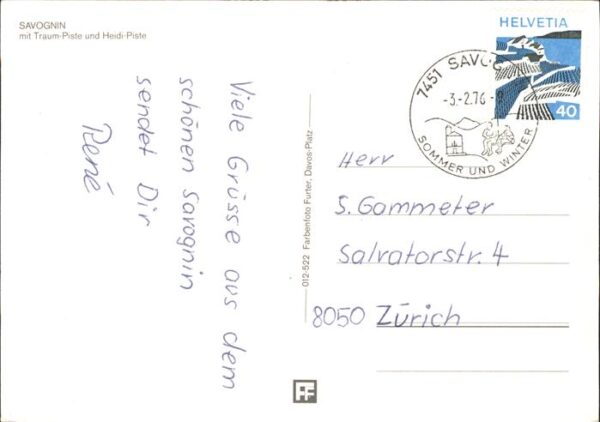 SAVOGNIN
mit Traum-Piste und Heidi-Piste
Viele Grüsse aus dem
schönen Savognin
sendet Dir
René
012-522 Farbenfoto Furter, Davos-Platz
HELVETIA
40
7451 SAVOG
-3.-2.76-8
SOMMER UND WINTER
Herr
S. Gammeter
Salvatorstr. 4
8050 Zürich